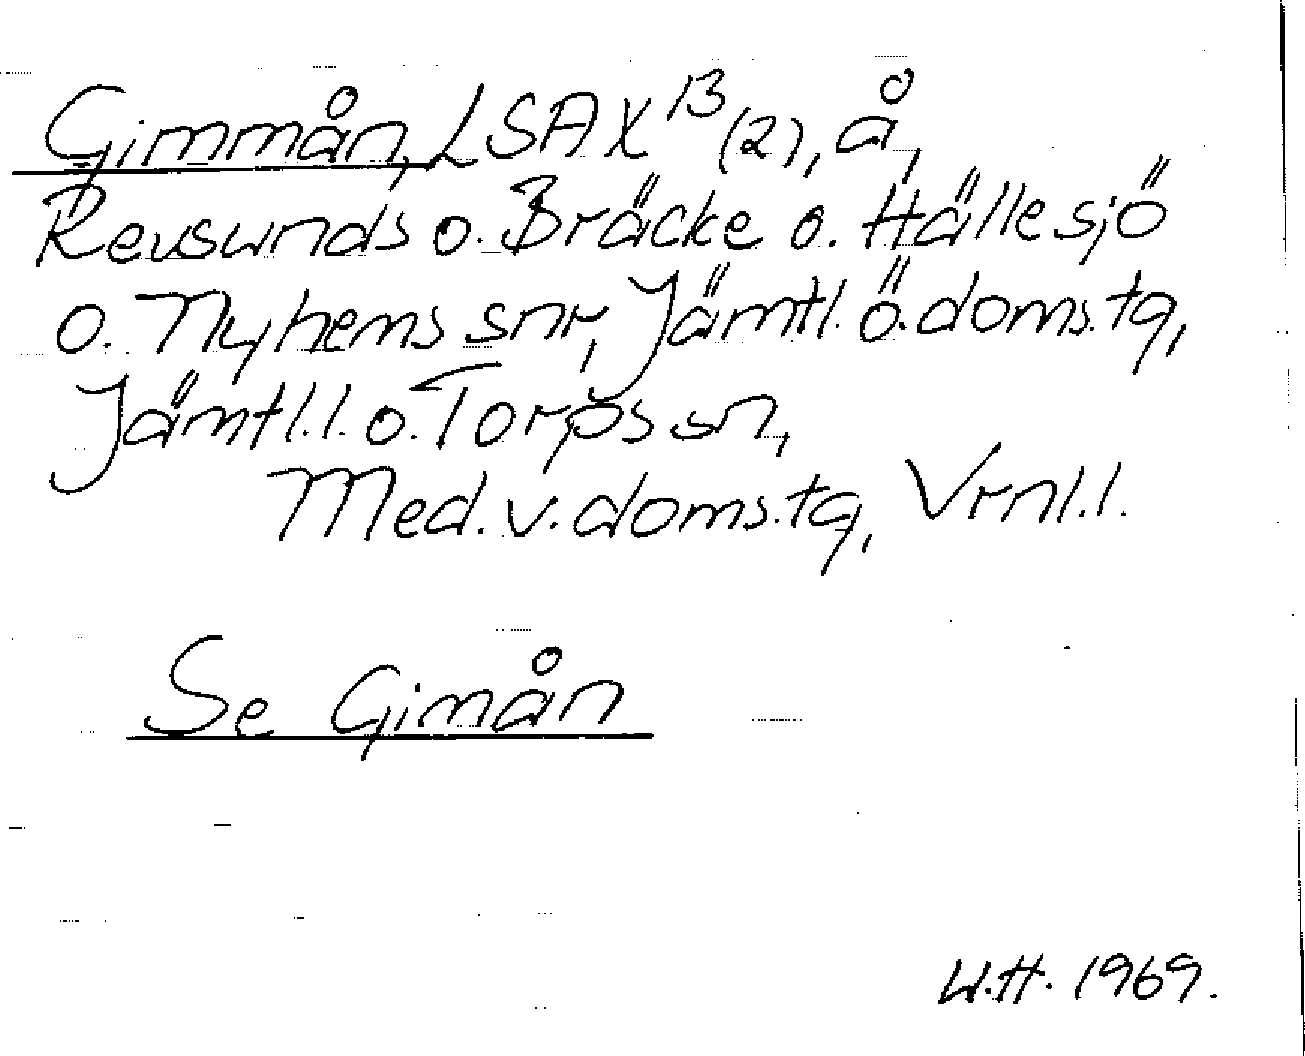 Gimmån, LSA X¹³ (2), å,
Revsunds o. Bräcke o. Hällesjö
o. Nyhems snr, Jämtl. ö. doms.tg,
Jämtl.l. o. Torps sn,
Med. v. doms.tg, Vrnl.l.
Se Gimån
W.H. 1969.